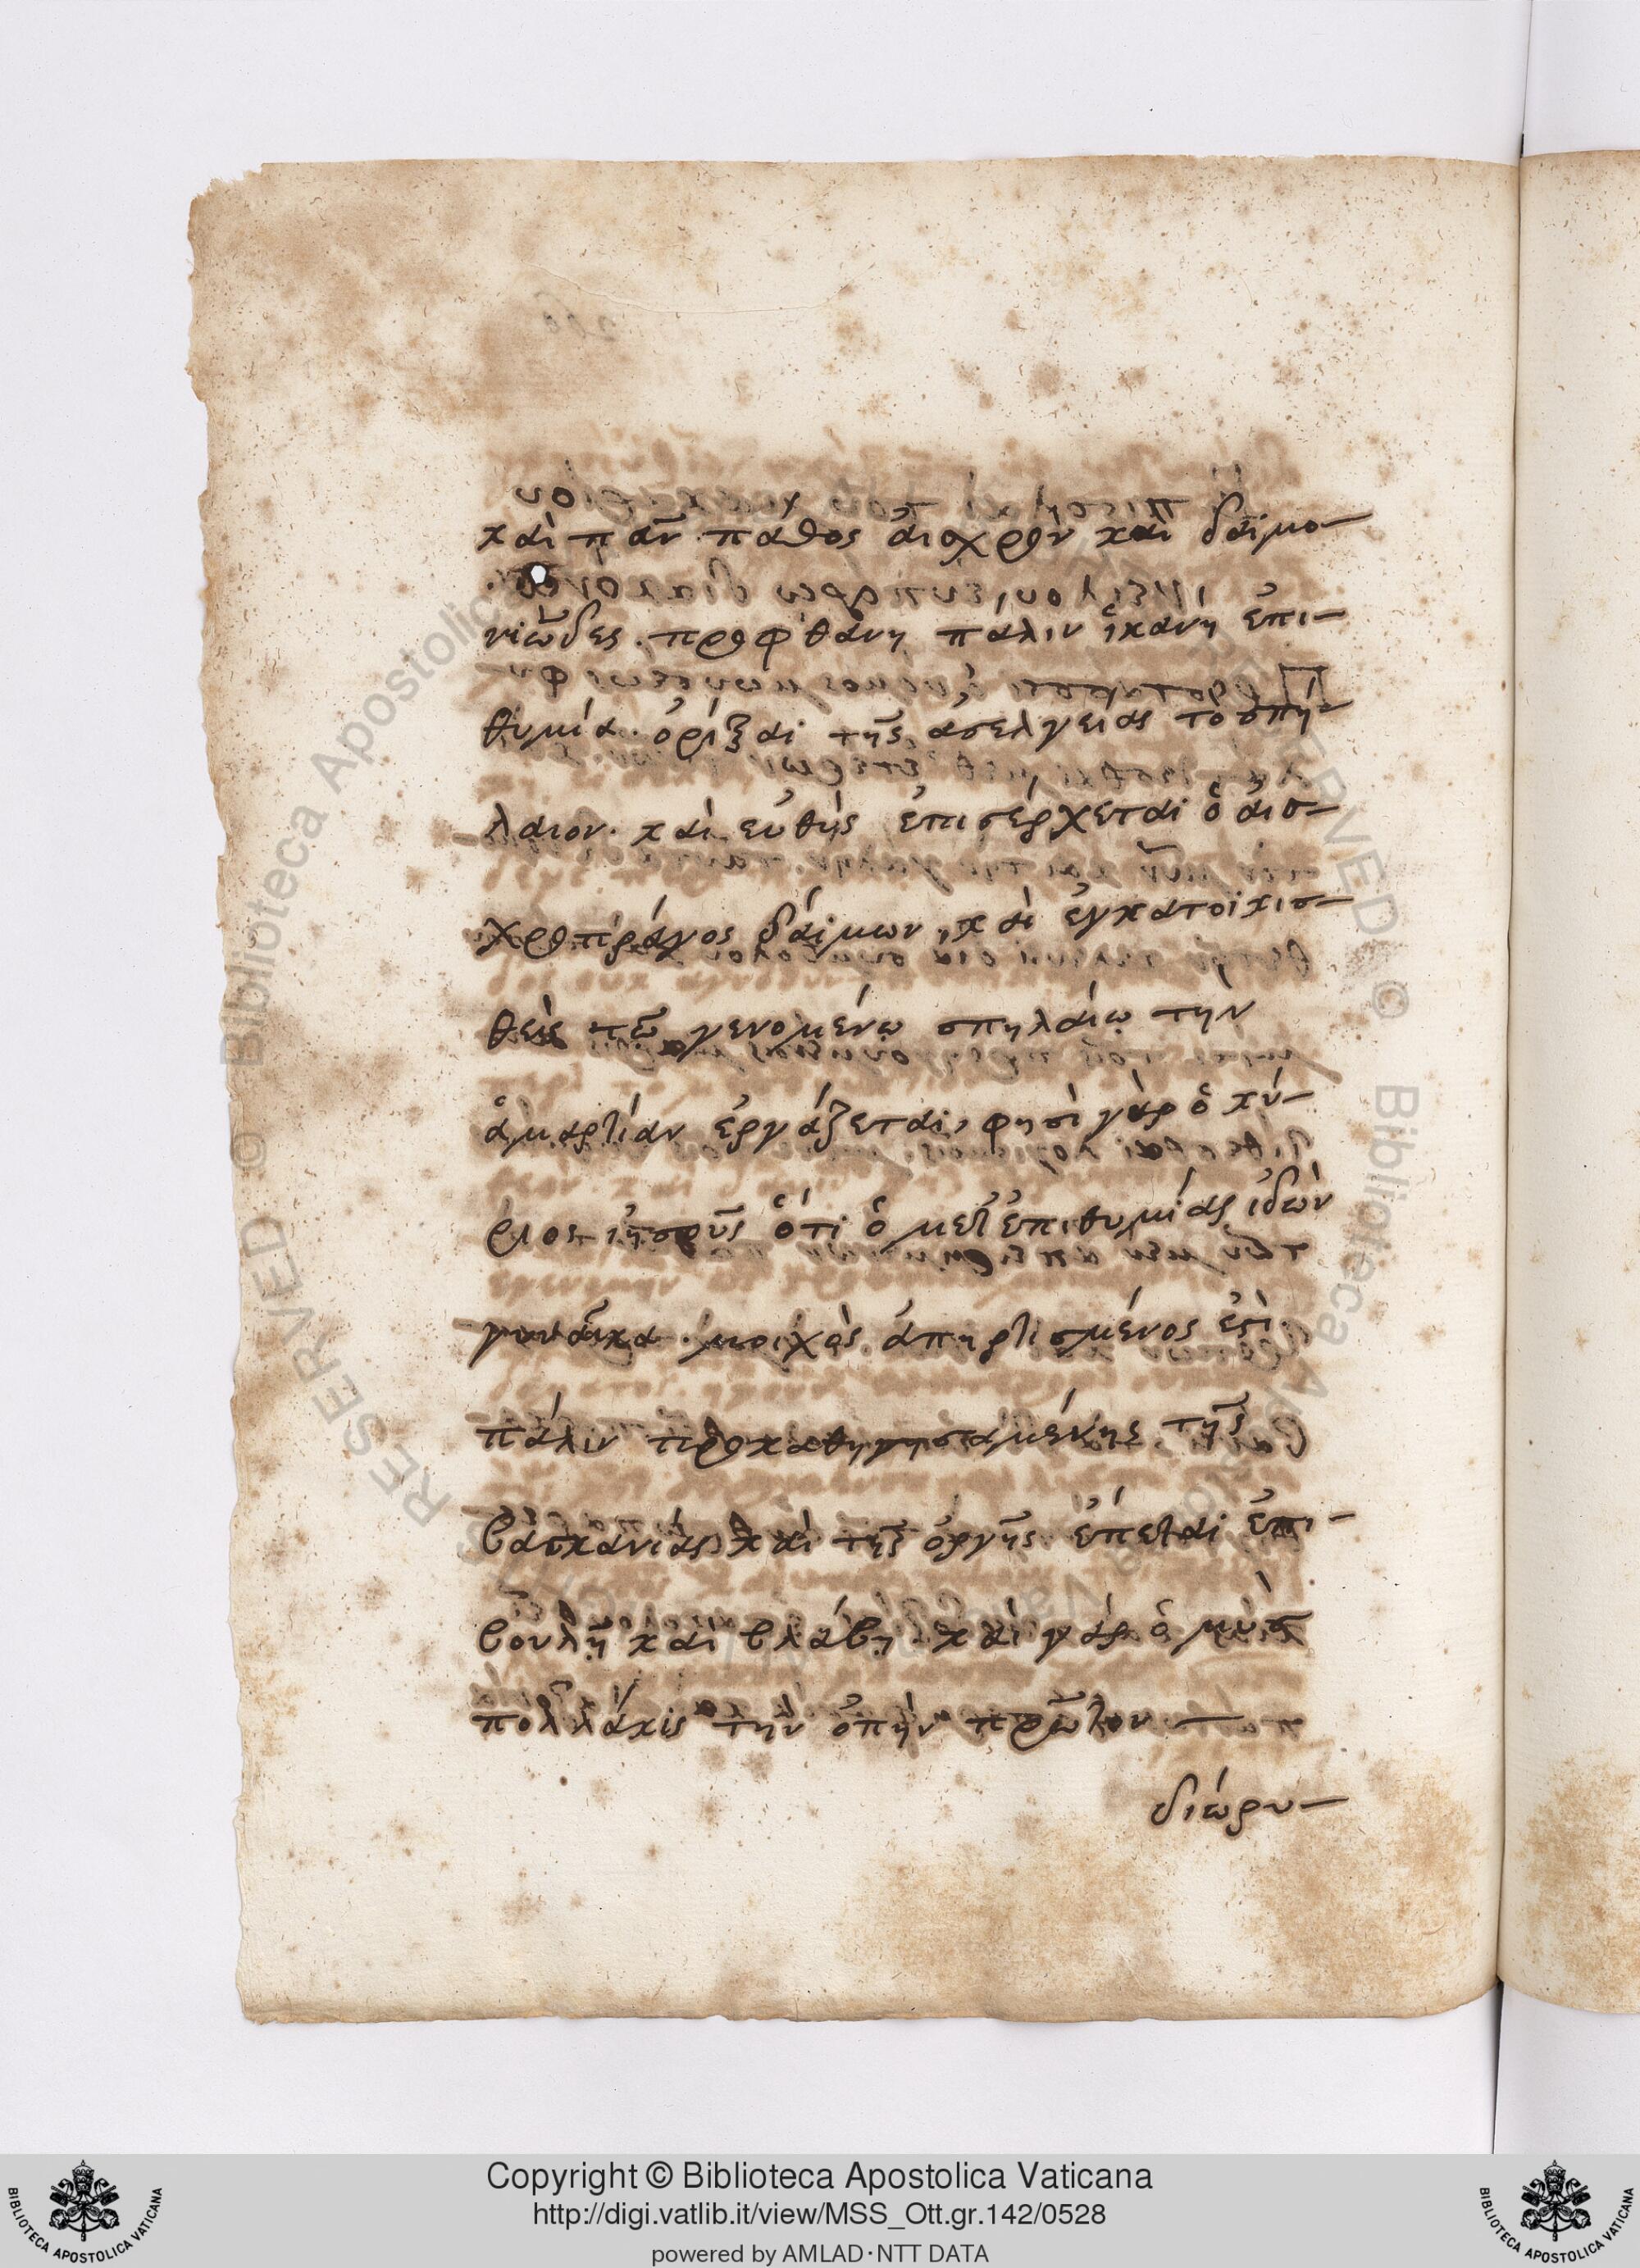 καὶ πᾶν πάθος ἀισχρὸν καὶ δαίμο-
νιῶδες. προφθάνη πάλιν ἱκανὴ ἐπι-
θυμία. ὀρίξαι τῆς ἀσελγείας τὸ σπή-
λαιον. καὶ ευθὺς ἐπισέρχεται ὁ ἀισ-
χροπράγος δαίμων, καὶ ἐγκατοικισ-
θεὶς τῶ γενομένω σπηλάιω τὴν
ἁμαρτίαν ἐργάζεται, φησὶ γὰρ ὁ κύ-
ριος ιησοῦς ὅτι ὁ μετ ἐπιθυμίας ἰδὼν
γυναῖκα. μοιχὸς ἀπηρτισμένος ἐστι.
πάλιν προκαθηγησαμένης τῆς
βασκανίας καὶ τῆς ὀργῆς ἕπεται ἐπι-
βουλὴ καὶ βλάβη. καὶ γάρ ὁ μὺς
πολλάκις τὴν ὀπὴν πρῶτον
διώρυ-
Copyright © Biblioteca Apostolica Vaticana
http://digi.vatlib.it/view/MSS_Ott.gr.142/0528
powered by AMLAD·NTT DATA
BIBLIOTECA APOSTOLICA VATICANA
BIBLIOTECA APOSTOLICA VATICANA